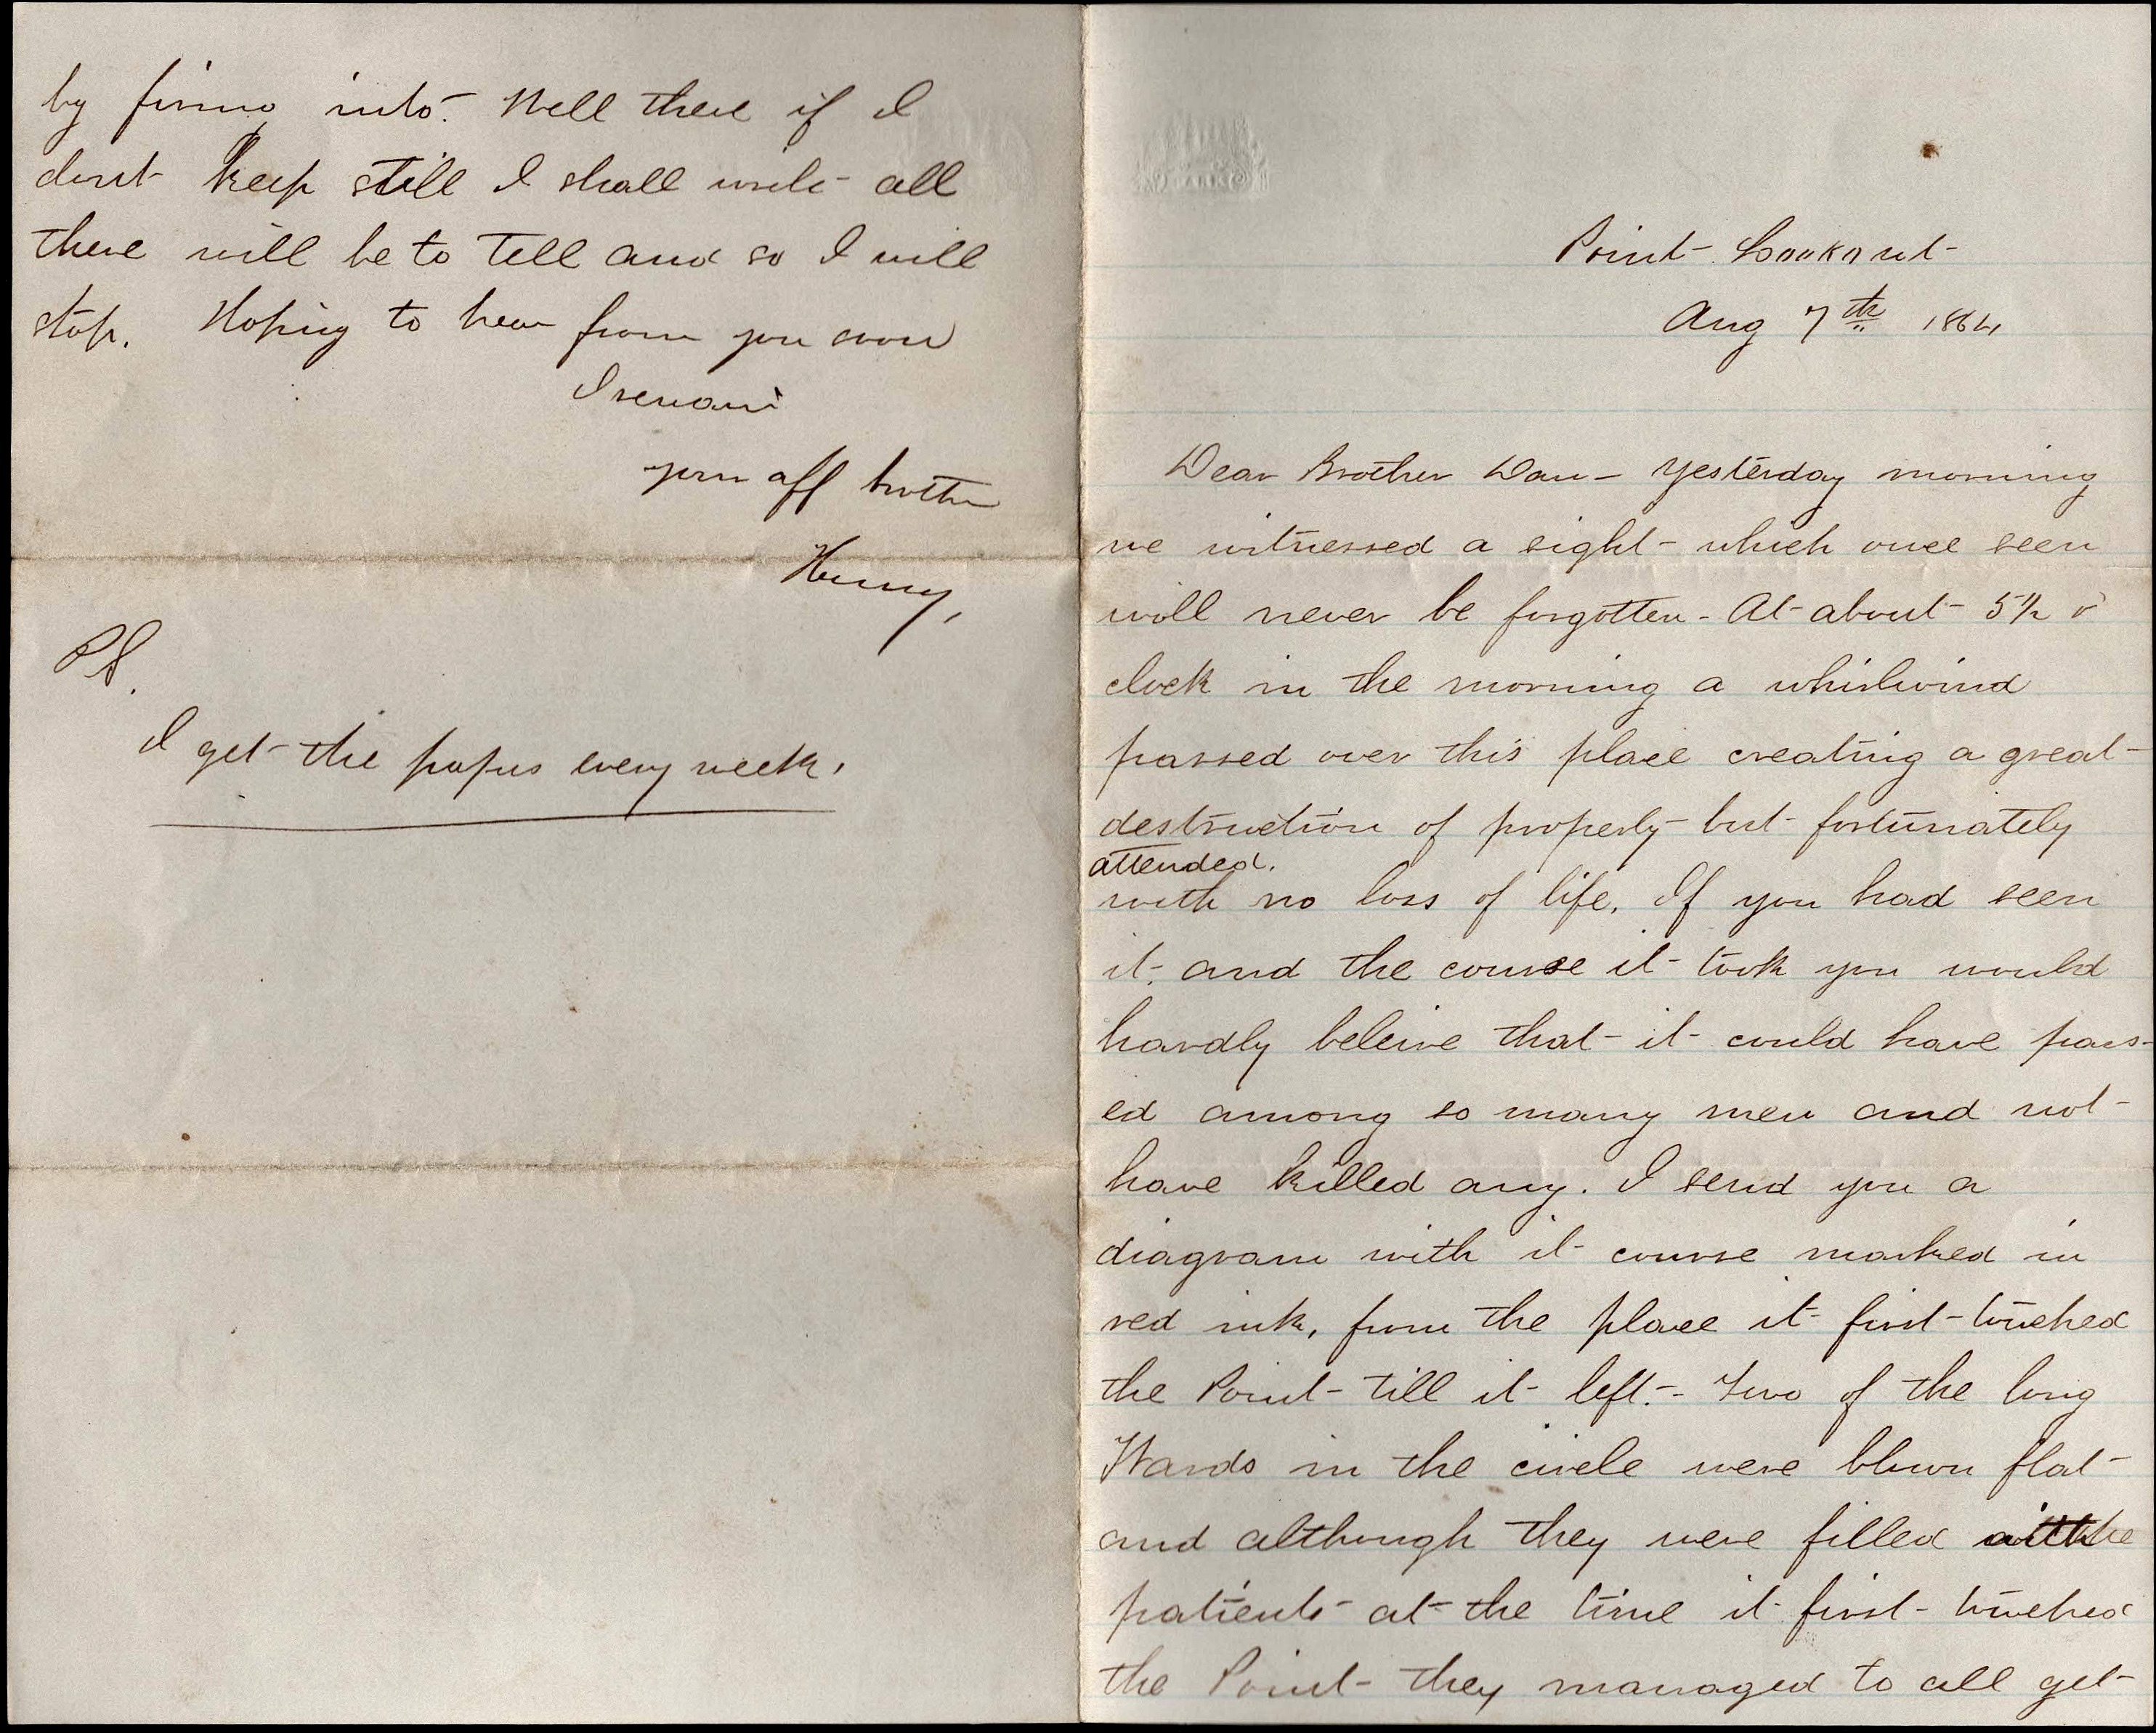 by firing into. Well there if I
dont keep still I shall write all
there will be to tell and so I will
stop. Hoping to hear from you soon
I remain
your aff brother
Henry,
PS.
I get the papers every week.
Point Lookout
Aug 7th 1864
Dear Brother Dan - Yesterday morning
we witnessed a sight - which once seen
will never be forgotten - At about 5 1/2 o'
clock in the morning a whirlwind
passed over this place creating a great
destruction of property but fortunately
attended.
with no loss of life. If you had seen
it, and the course it took you would
hardly beleive that it could have pass-
ed among so many men and not
have killed any. I send you a
diagram with it course marked in
red ink, from the place it first touched
the Point till it left. - Two of the long
Wards in the circle were blown flat
and although they were filled with
patients at the time it first touched
the Point they managed to all get